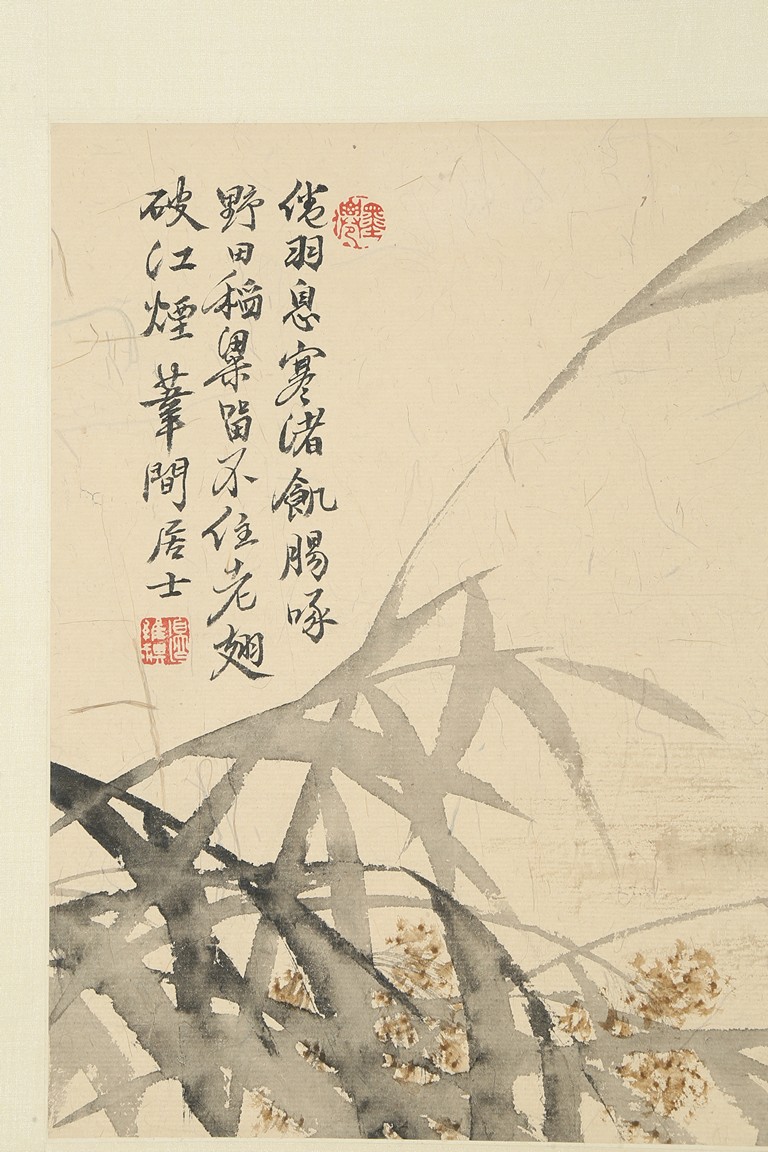 倦羽息寒渚飢腸啄
野田稻粱留不住老翅
破江煙 葦間居士